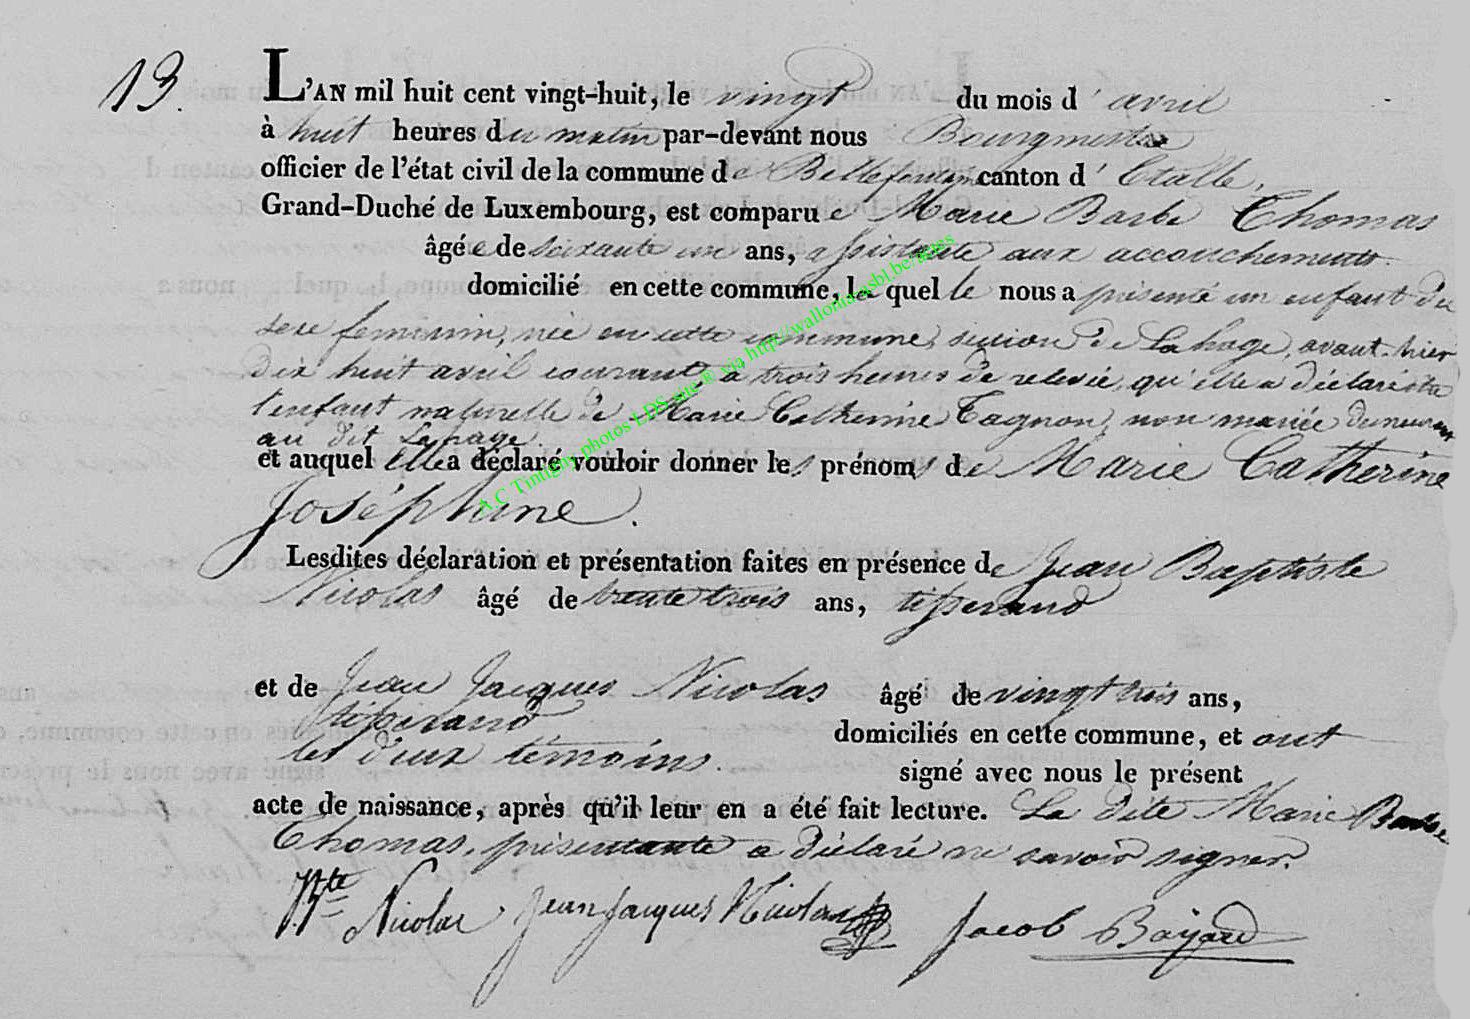 13.
L'AN mil huit cent vingt-huit, le vingt du mois d'avril
à huit heures du matin par-devant nous Bourgmestre
officier de l'état civil de la commune de Bellefontaine canton d'Etalle,
Grand-Duché de Luxembourg, est comparue Marie Barbe Thomas
âgée de soixante un ans, assistante aux accouchements.
domicilié en cette commune, la quelle nous a présenté un enfant du
sexe feminin, née en cette commune, section de Lahage, avant-hier
dix huit avril courant, à trois heures de relevée, qu'elle a déclaré être
l'enfant naturelle de Marie Catherine Tagnon, non mariée demeurant
au dit Lahage.
et auquel elle a déclaré vouloir donner les prénoms de Marie Catherine
Joséphine.
Lesdites déclaration et présentation faites en présence de Jean Baptiste
Nicolas âgé de trente trois ans, tisserand
et de Jean Jacques Nicolas âgé de vingt trois ans,
tisserand domiciliés en cette commune, et ont
les deux témoins. signé avec nous le présent
acte de naissance, après qu'il leur en a été fait lecture. La dite Marie Barbe
Thomas, présentante a déclaré ne savoir signer.
Bte Nicolas Jean Jacques Nicolas Jacob Bayard
A.C Tintigny photos LDS site ® via http://wallonia-asbl.be/actes